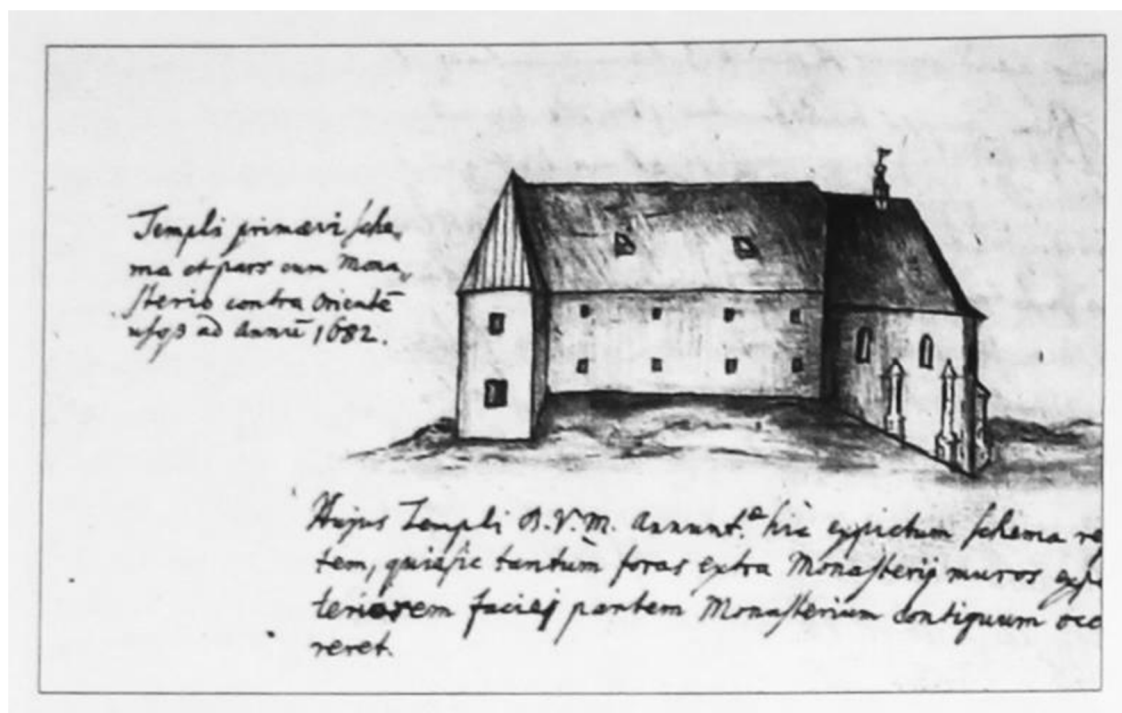 Templi primævi sche„
ma et pars cum Mona„
sterio contra Orientē
usqȝ ad Annū 1682.
Hujus Templi B.V.M. Annunt.æ hic expictum schema re
tem, quia sic tantùm foras extra Monasterij muros exp
teriorem faciej partem Monasterium contiguum occ
reret.